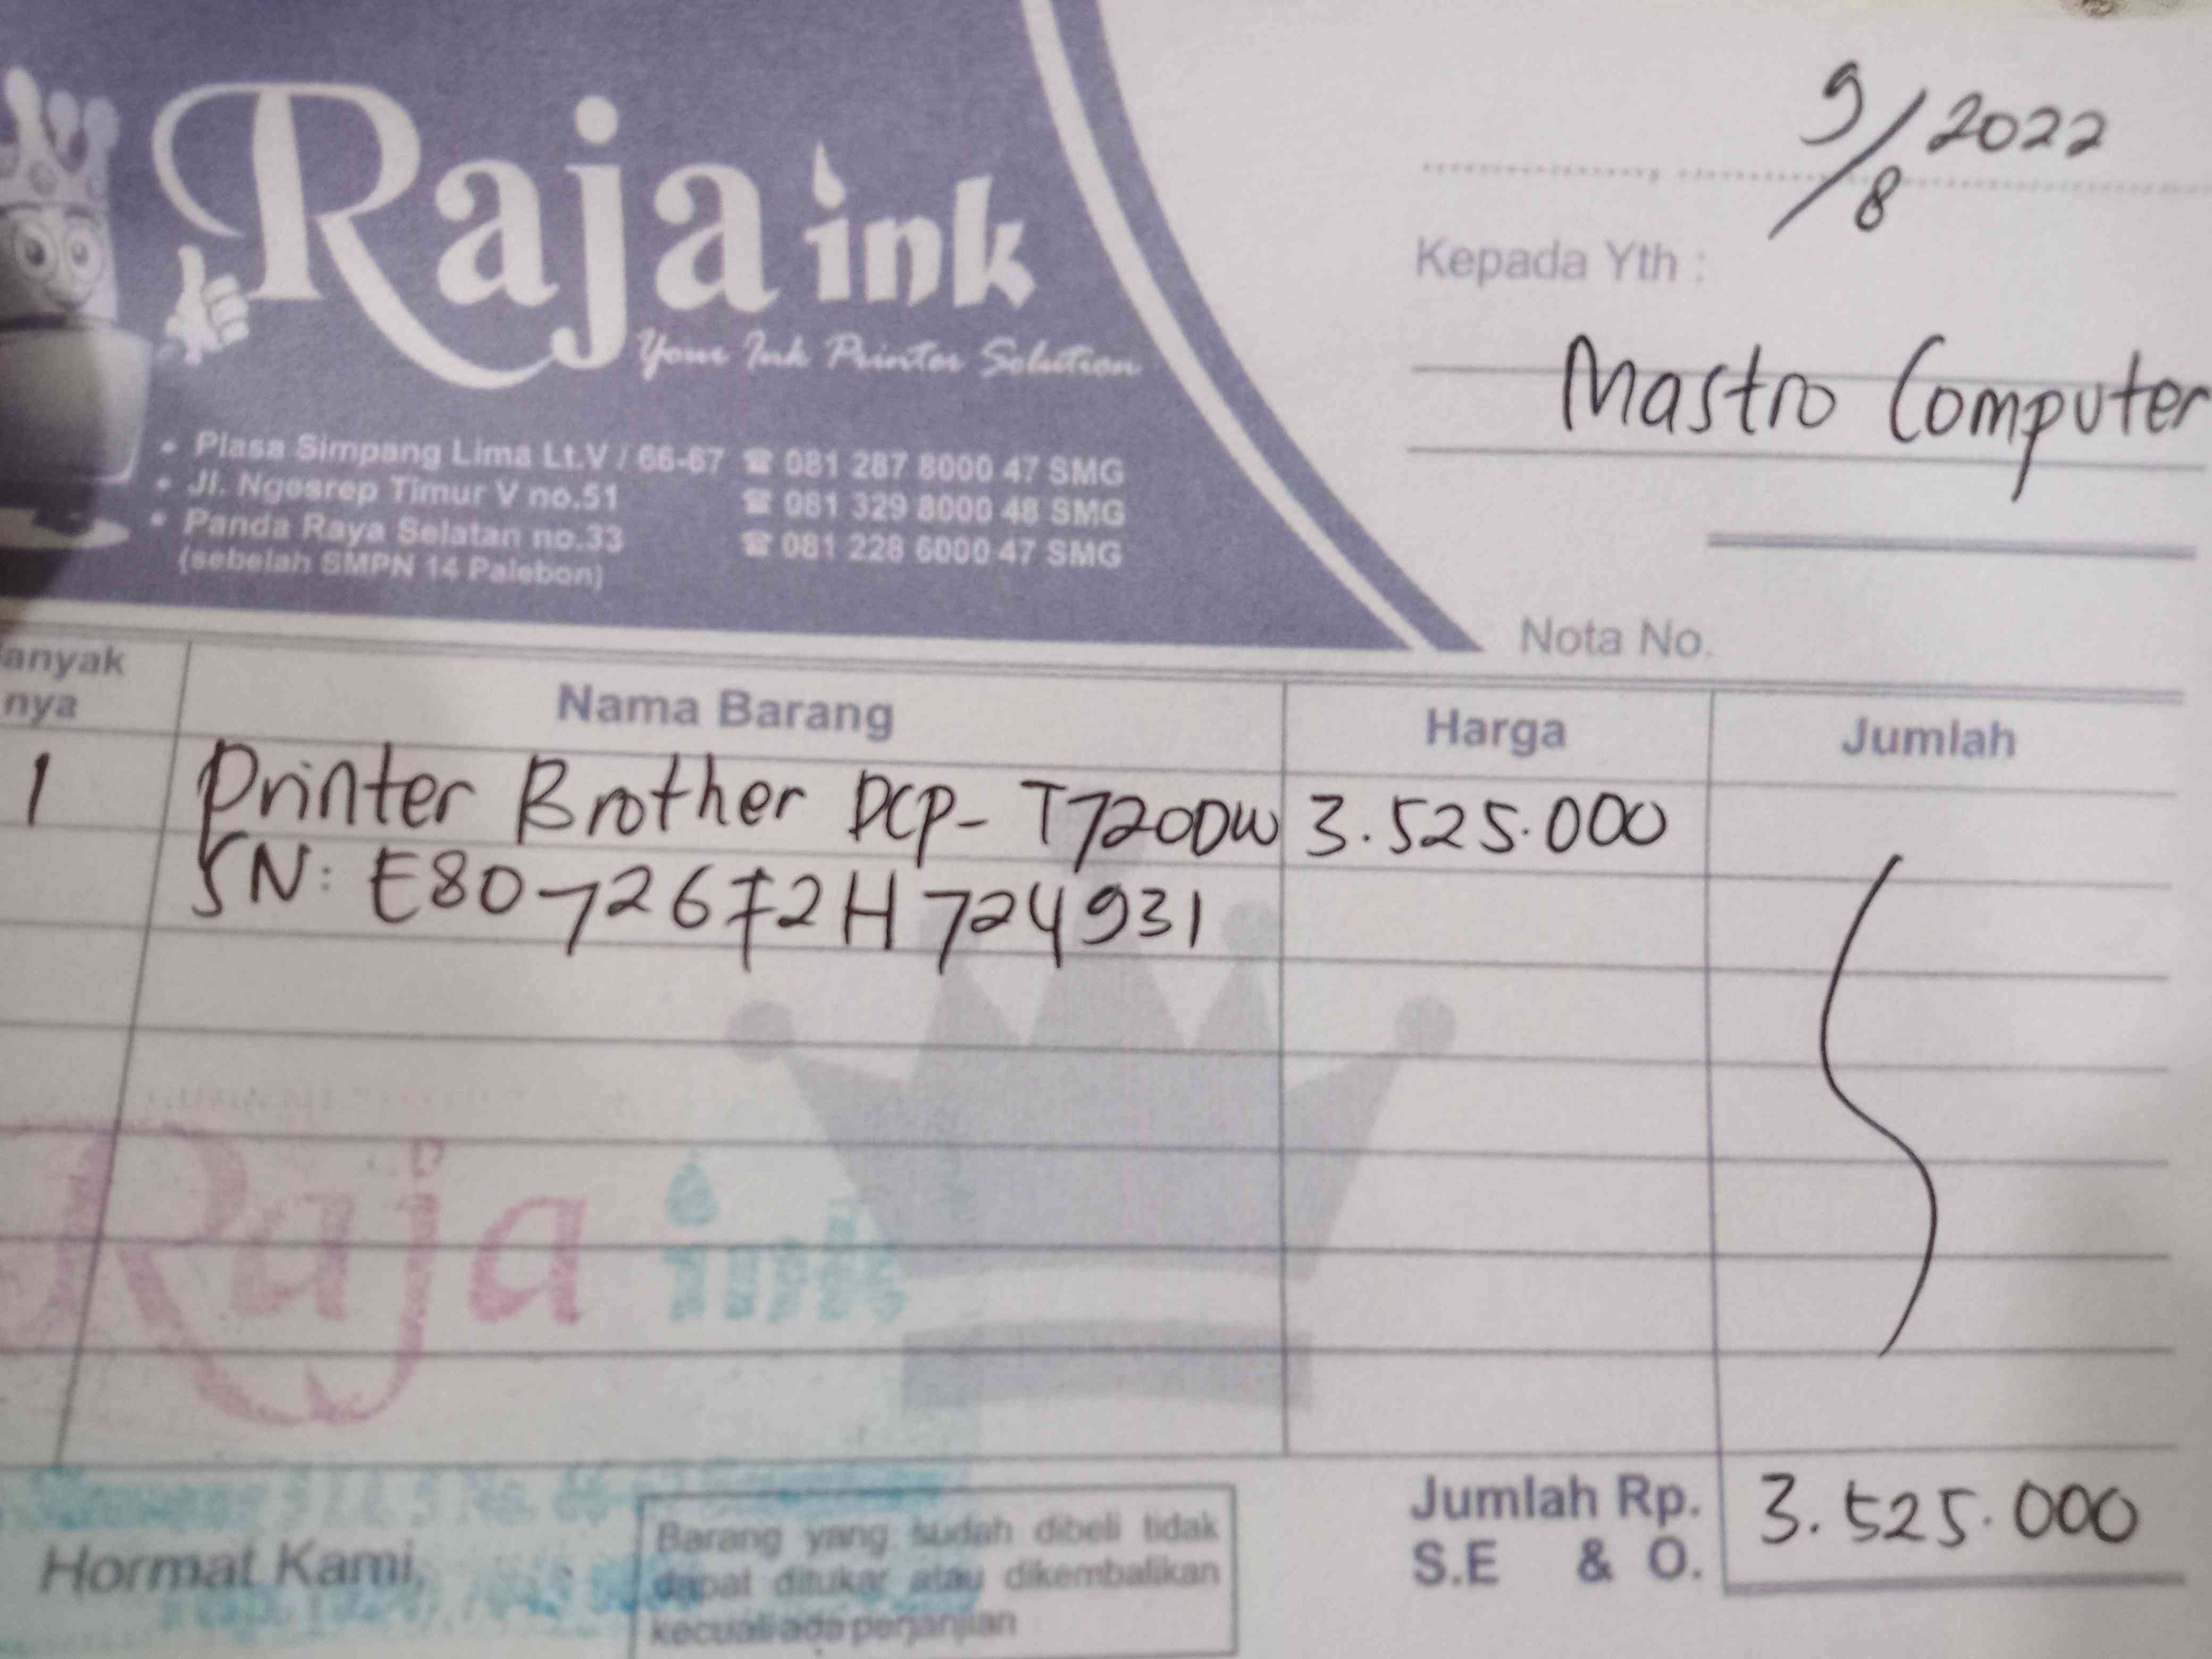 Raja ink
Your Ink Printer Solution
• Plasa Simpang Lima Lt.V / 66-67 ☎ 081 287 8000 47 SMG
• Jl. Ngesrep Timur V no.51 ☎ 081 329 8000 48 SMG
• Panda Raya Selatan no.33 ☎ 081 228 6000 47 SMG
(sebelah SMPN 14 Palebon)
9/8 2022
Kepada Yth :
Mastro Computer
Nota No.
anyak
nya
Nama Barang
Harga
Jumlah
1 Printer Brother DCP- T720DW 3.525.000
SN: E80726F2H724931
Raja ink
Hormat Kami,
Barang yang sudah dibeli tidak
dapat ditukar atau dikembalikan
kecuali ada perjanjian
Jumlah Rp. 3.525.000
S.E & O.